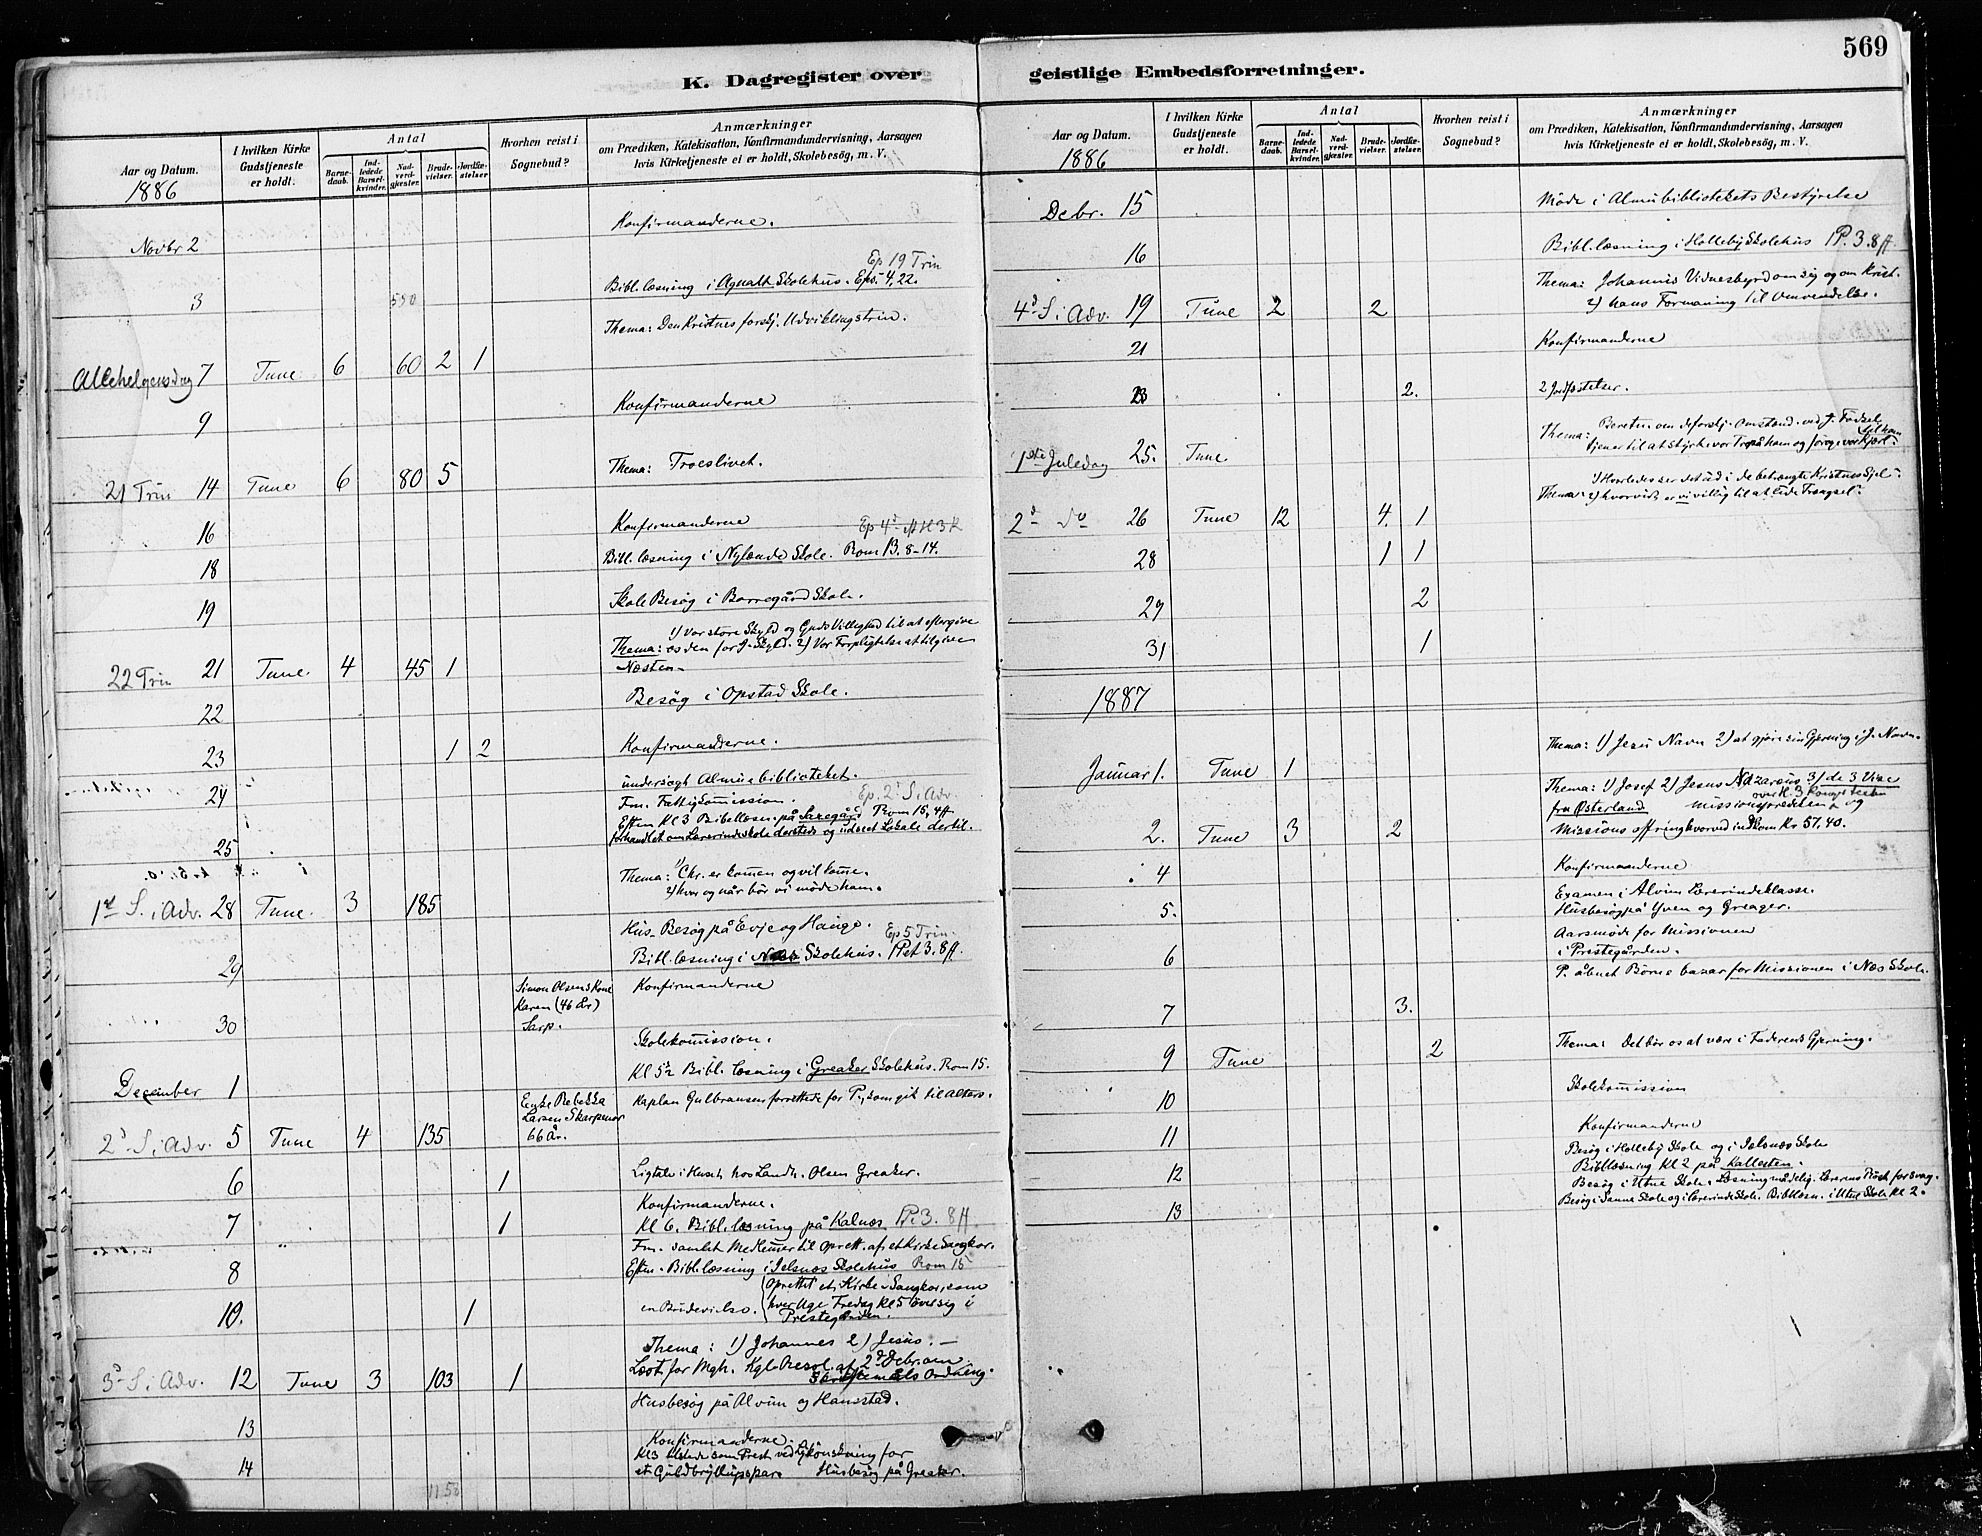 569
K. Dagregister over
geistlige Embedsforretninger.
Aar og Datum.
1886
I hvilken Kirke Gudstjeneste er holdt.
Antal
Barnedaab.
Indledede Barselkvinder.
Nadverdgjester.
Brudevielser.
Jordfæstelser.
Hvorhen reist i Sognebud?
Anmærkninger
om Prædiken, Katekisation, Konfirmandundervisning, Aarsagen
hvis Kirketjeneste ei er holdt, Skolebesøg, m. V.
Novbr 2 Konfirmanderne.
Ep 19 Trin
3 550 Bibl. læsning i Agnalt Skolehus. Eps. 4, 22.
Thema: Den Kristnes forskj. Udviklingstrin.
Allehelgensdag 7 Tune 6 60 2 1
9 Konfirmanderne
21 Trin 14 Tune 6 80 5 Thema: Troeslivet.
16 Konfirmanderne
18 Bibl. læsning i Nylænde Skole. Rom 13. 8-14.
19 Skole Besøg i Borregård Skole.
1) Vor store Skyld og Guds Villighed til at eftergive
Thema: os den for J. Skyld. 2) Vor Forpligtelse at tilgive
22 Trin 21 Tune 4 45 1 Næsten.
22 Besøg i Opstad Skole.
23 1 2 Konfirmanderne.
24 undersøgt Almuebiblioteket.
Fm. Fattigkommission. Ep. 2d S. i Adv.
Eftm Kl 3 Bibellæsn. på Rom 15, 4ff
25 forhandlet om Lærerindeskole dersteds og udseet Lokale dertil.
Thema: 1) Chr. er komen og vil kome.
2) hvor og når bør vi møde ham.
1ste S. i Adv. 28 Tune. 3 185
Hus-Besøg på Evje og Hauge. Ep 5 Trin.
29 Bibl. læsning i Skolehus. 1 Pet 3. 8ff.
30 Simon Olsens Kone Karen (46 år) Sarp. Konfirmanderne
Skolekommission.
December 1 Kl 5½ Bibl. læsning i Greaker Skolehus. Rom 15.
2d S. i Adv. 5 Tune 4 135 Enke Rebekka Larsen 66 år. Kaplan Gulbransen forrettede for P., som gik til Alters.
6 1 Ligtale i Huset hos Landh. Olsen Greaker.
Konfirmanderne.
7 1 Kl 6. Bibl. læsning på Kalnæs 1 P. 3. 8 ff.
Fm. samlet Medlemer til oprett. af et Kirke Sangkor.
8 Eftm. Bibl. læsning i Jelsnæs Skolehus Rom 15
10. 1 en Brudevielse. (oprettet et Kirke-Sangkor, som
hver Uge Fredag Kl 5 øver sig i
Prestegården.
Thema: 1) Johannes 2) Jesus. —
3d S. i Adv. 12 Tune 3 103 1 Læst for Mgh. Kgl. Resol. af 2d Debr. om
Ordning.
13 Husbesøg på Alvim og Hansstad.
Konfirmanderne.
14 Kl 3 tilstede som Prest ved Lykønskning for
et Guldbryllupspar. Husbesøg på Greaker.
1150
Aar og Datum.
1886
I hvilken Kirke Gudstjeneste er holdt.
Antal
Barnedaab.
Indledede Barselkvinder.
Nadverdgjester.
Brudevielser.
Jordfæstelser.
Hvorhen reist i Sognebud?
Anmærkninger
om Prædiken, Katekisation, Konfirmandundervisning, Aarsagen
hvis Kirketjeneste ei er holdt, Skolebesøg, m. V.
Debr. 15 Møde i Almubibliotekets Bestyrelse
16 Bibl. læsning i Holleby Skolehus 1 P. 3. 8 ff.
Thema: Johannes Vidnesbyrd om sig og om Krist.
4d S. i Adv. 19 Tune 2 2 2) hans Formaning til Omvendelse.
21 Konfirmanderne
23 2. 2 Jordfæstelser.
Thema: Beretn. om de forskj. Omstænd. ved J. Fødsel
1ste Juledag 25. Tune tjener til at styrke vor Tro på ham og forøge vor Kjærl. til ham
1) Hvorledes ser det ud i de betrængte Kristnes Sjel.
Thema: 2) hvorvidt er vi villig til at lide Trængsel.
2d do 26 Tune 12 4. 1
28 1 1
29 2
31 1
1887
Januar 1. Tune 1 Thema: 1) Jesu Navn 2) at gjøre sin Gjerning i J. Navn.
Thema: 1) Josef 2) Jesus Nazaræus 3) de 3 Vise
fra Østerland
2. Tune 3 2 Missions offring hvorved indkom Kr 57.40.
4 Konfirmanderne
Examen i Alvim Lærerindeklasse.
5. Husbesøg på Yven og Greager.
Aarsmøde for Missionen
6 i Prestegården.
P. åbnet Børne bazar for Missionen i Næs Skole.
7 3.
9 Tune 2 Thema: Det bør os at være i Faderens Gjerning.
10 Skolekommission
11 Konfirmanderne
Besøg i Holleby Skole og i Jelsnæs Skole
12 Bibllæsning Kl 2 på
Besøg i Utne Skole.
13 Besøg i Sanne Skole og i Lærerinde Skole. Bibllæsn. i Utne Skole Kl 2.